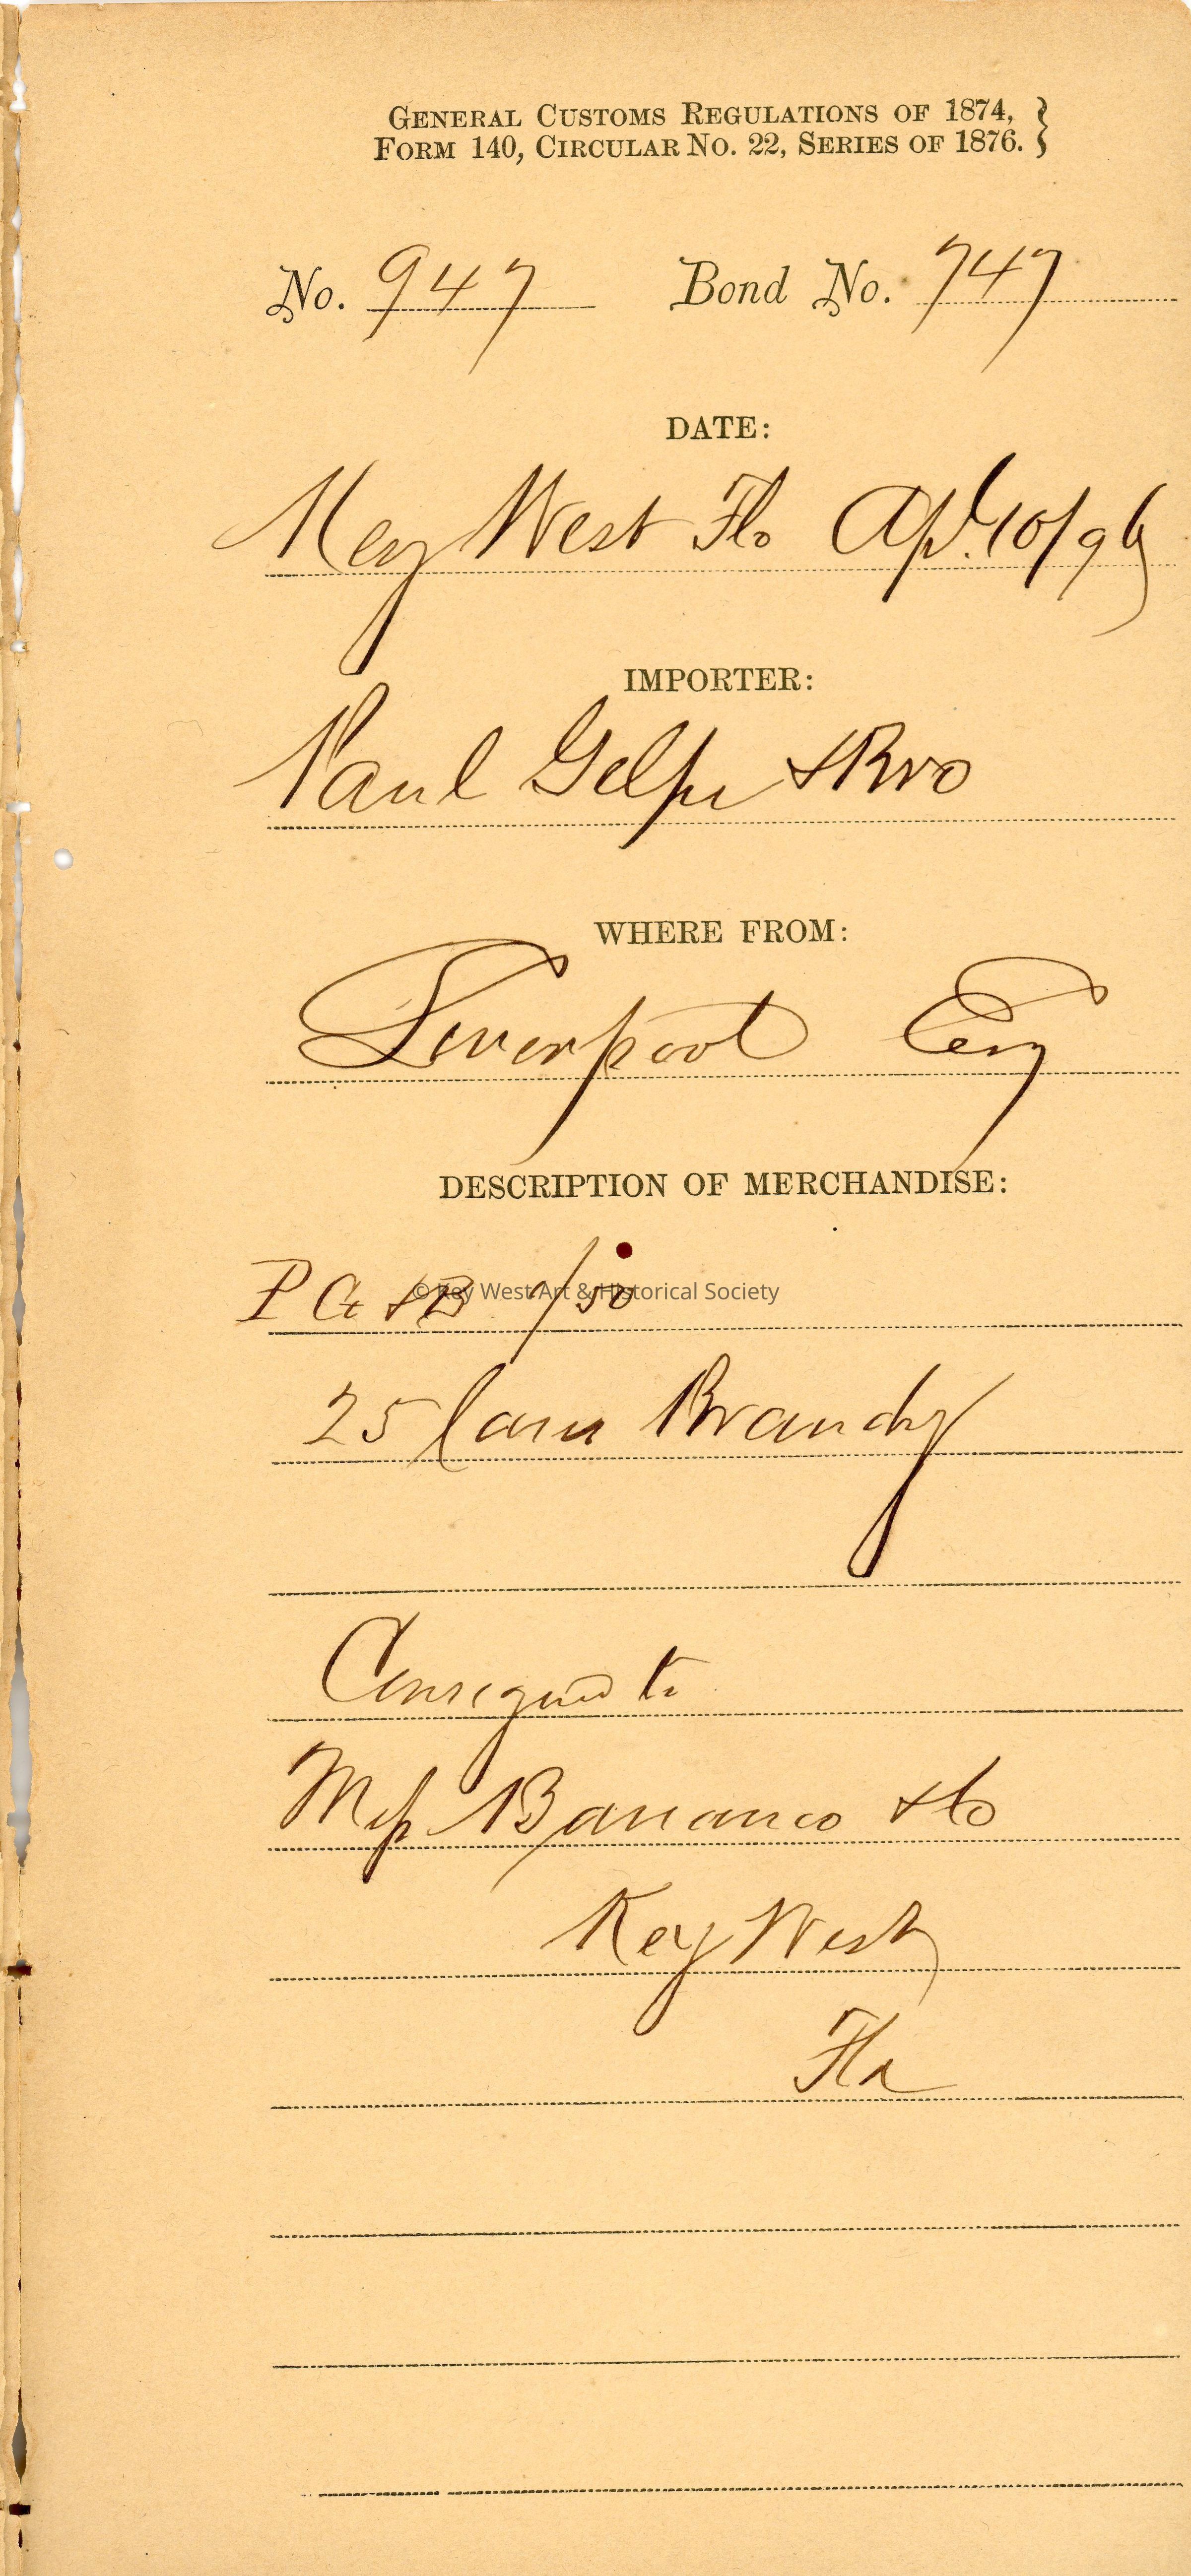 GENERAL CUSTOMS REGULATIONS OF 1874,
FORM 140, CIRCULAR NO. 22, SERIES OF 1876.
No. 947 Bond No. 747
DATE:
Key West Fla Apl. 10/96
IMPORTER:
Paul Gelpi & Bro
WHERE FROM:
Liverpool Eng
DESCRIPTION OF MERCHANDISE:
P G & B 1/50
© Key West Art & Historical Society
25 Cases Brandy
Consigned to
& Co
Key West
Fla